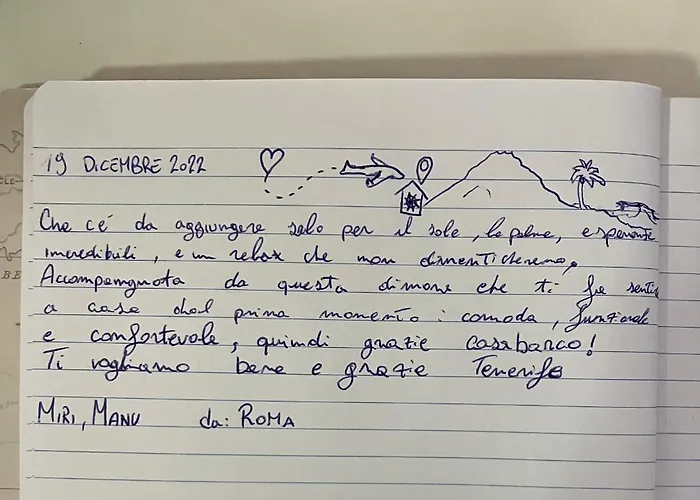 19 DICEMBRE 2022
Che c'é da aggiungere solo per il sole, le palme, esperienze
incredibili, e un relax che non dimenticheremo,
Accompamgnata da questa dimora che ti fa sentir
a casa dal primo momento: comoda, funzionale
e confortevole, quindi grazie casabarco!
Ti vogliamo bene e grazie Tenerife
MIRI, MANU da: ROMA